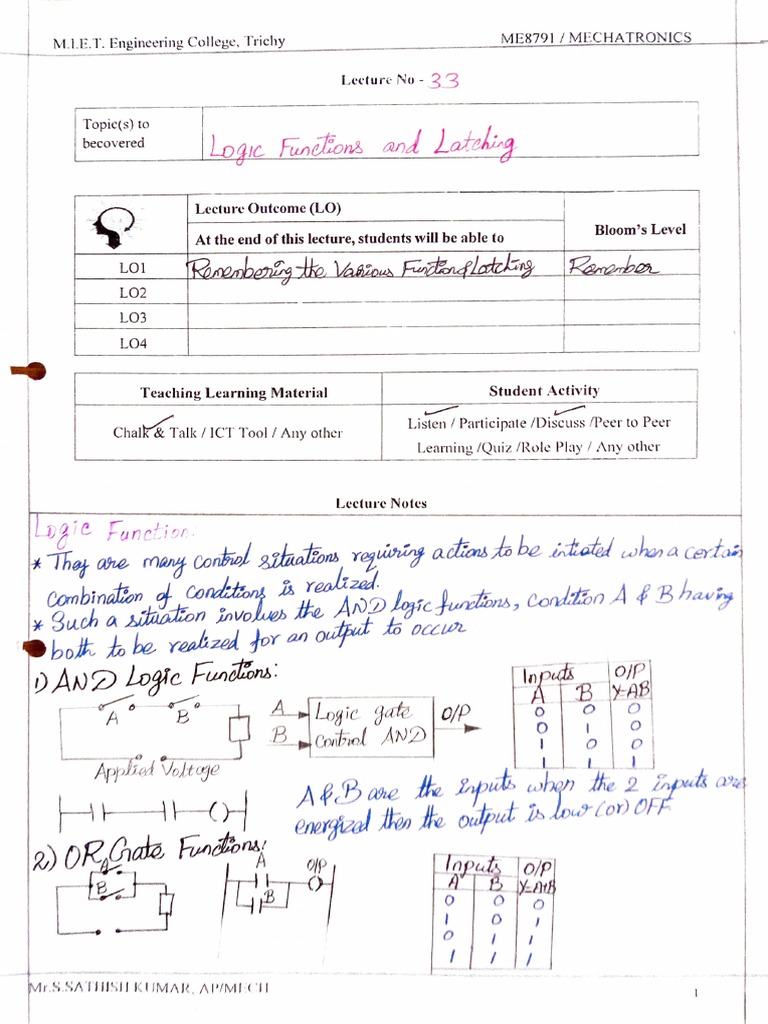 M.I.E.T. Engineering College, Trichy ME8791 / MECHATRONICS
Lecture No - 33
Topic(s) to
becovered
Logic Functions and Latching
Lecture Outcome (LO)
At the end of this lecture, students will be able to
Bloom's Level
LO1 Remembering the Various Function & Latching Remember
LO2
LO3
LO4
Teaching Learning Material Student Activity
Chalk & Talk / ICT Tool / Any other
Listen / Participate /Discuss /Peer to Peer
Learning /Quiz /Role Play / Any other
Lecture Notes
Logic Function:
* They are many control situations requiring actions to be intiated when a certain
combination of conditions is realized.
* Such a situation involves the AND logic functions, condition A & B having
both to be realized for an output to occur
1) AND Logic Functions:
A B
Applied Voltage
A
B
Logic gate
control AND
O/P
Inputs O/P
A B Y=AB
0 0 0
0 1 0
1 0 0
1 1 1
A & B are the inputs when the 2 inputs are
energized then the output is low (or) OFF
2) OR Gate Functions:
A
B
A O/P
B
Inputs O/P
A B Y=A+B
0 0 0
1 0 1
0 1 1
1 1 1
Mr.S.SATHISH KUMAR, AP/MECH 1